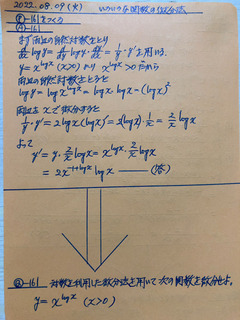 2022.08.09(火) いろいろな関数の微分法
②-161をつくる
②-161
まず両辺の自然対数をとり
d/dx log y = d/dy log y · dy/dx = 1/y · y' を用いる.
y = x^{log x} (x>0) より x^{log x} > 0 だから
両辺の自然対数をとると
log y = log x^{log x} = log x · log x = (log x)^2
両辺を x で微分すると
1/y · y' = 2 log x (log x)' = 2(log x) · 1/x = 2/x log x
よって
y' = y · 2/x log x = x^{log x} · 2/x log x
= 2x^{-1+log x} log x ——(答)
②-161 対数を利用した微分法を用いて次の関数を微分せよ。
y = x^{log x} (x>0)